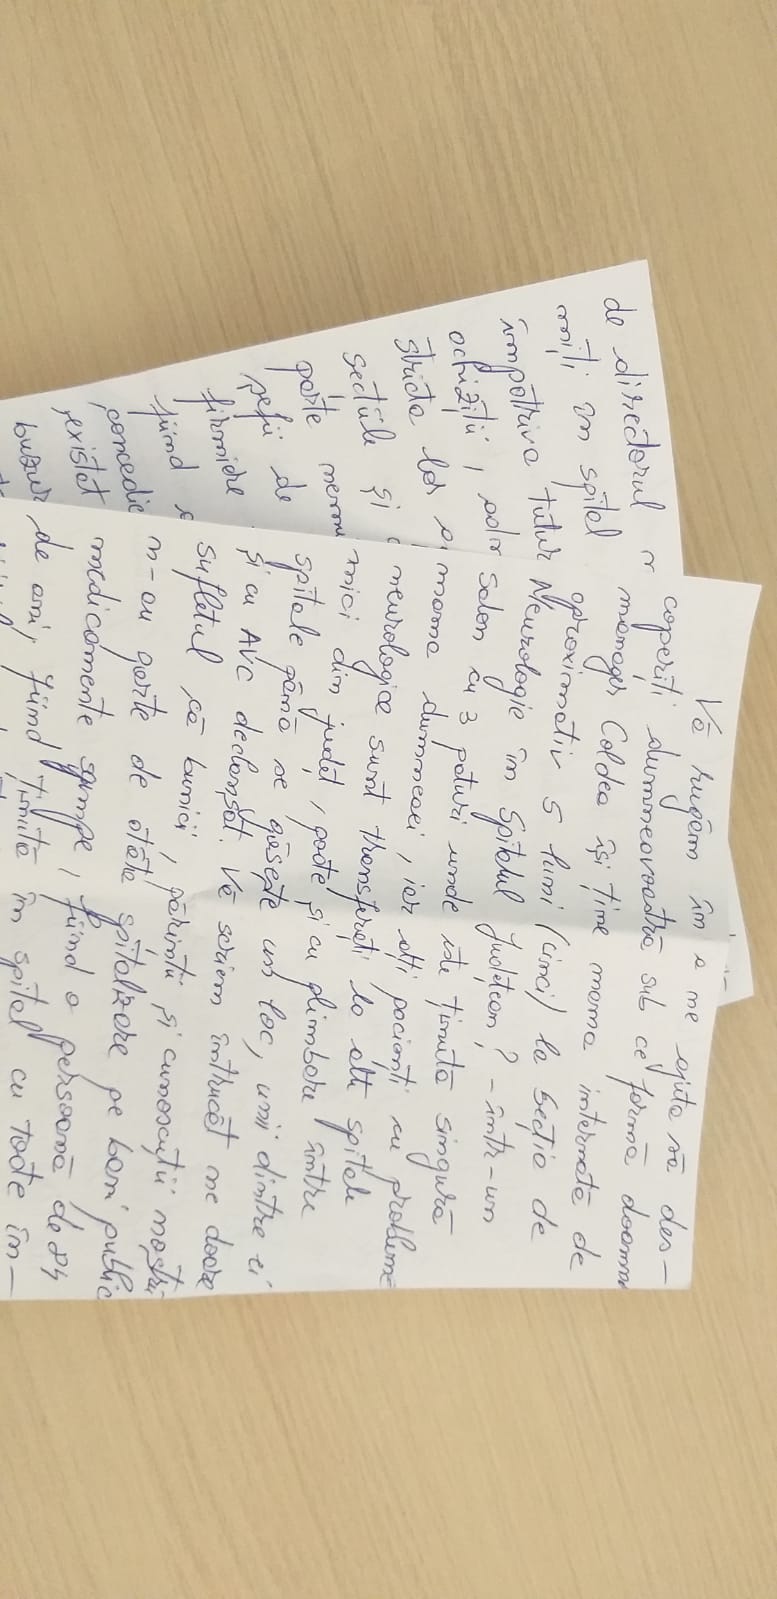 Vă rugăm în a ne ajuta să des-
coperiți dumneavoastră sub ce formă doamna
manager Coldea își ține mama internată de
aproximativ 5 luni (cinci) la Secția de
Neurologie în Spitalul Județean? - într-un
salon cu 3 paturi unde este ținută singură
mama dumneaei, iar alți pacienți cu probleme
neurologice sunt transferați la alte spitale
mici din județ, poate și cu plimbare între
spitale până se găsește un loc, unii dintre ei
și cu AVC declanșat. Vă scriem întrucât ne doare
sufletul că bunicii, părinții și cunoscuții noștri
n-au parte de atâta spitalizare pe bani publici
medicamente scumpe, fiind o persoană de 84
de ani, fiind ținută în spital cu toate în-
de directorul
în spital
împotriva tutur
achiziții, adir
stricta
secțiile și
parte
șefii de
firmiere
fiind
concedie
existat